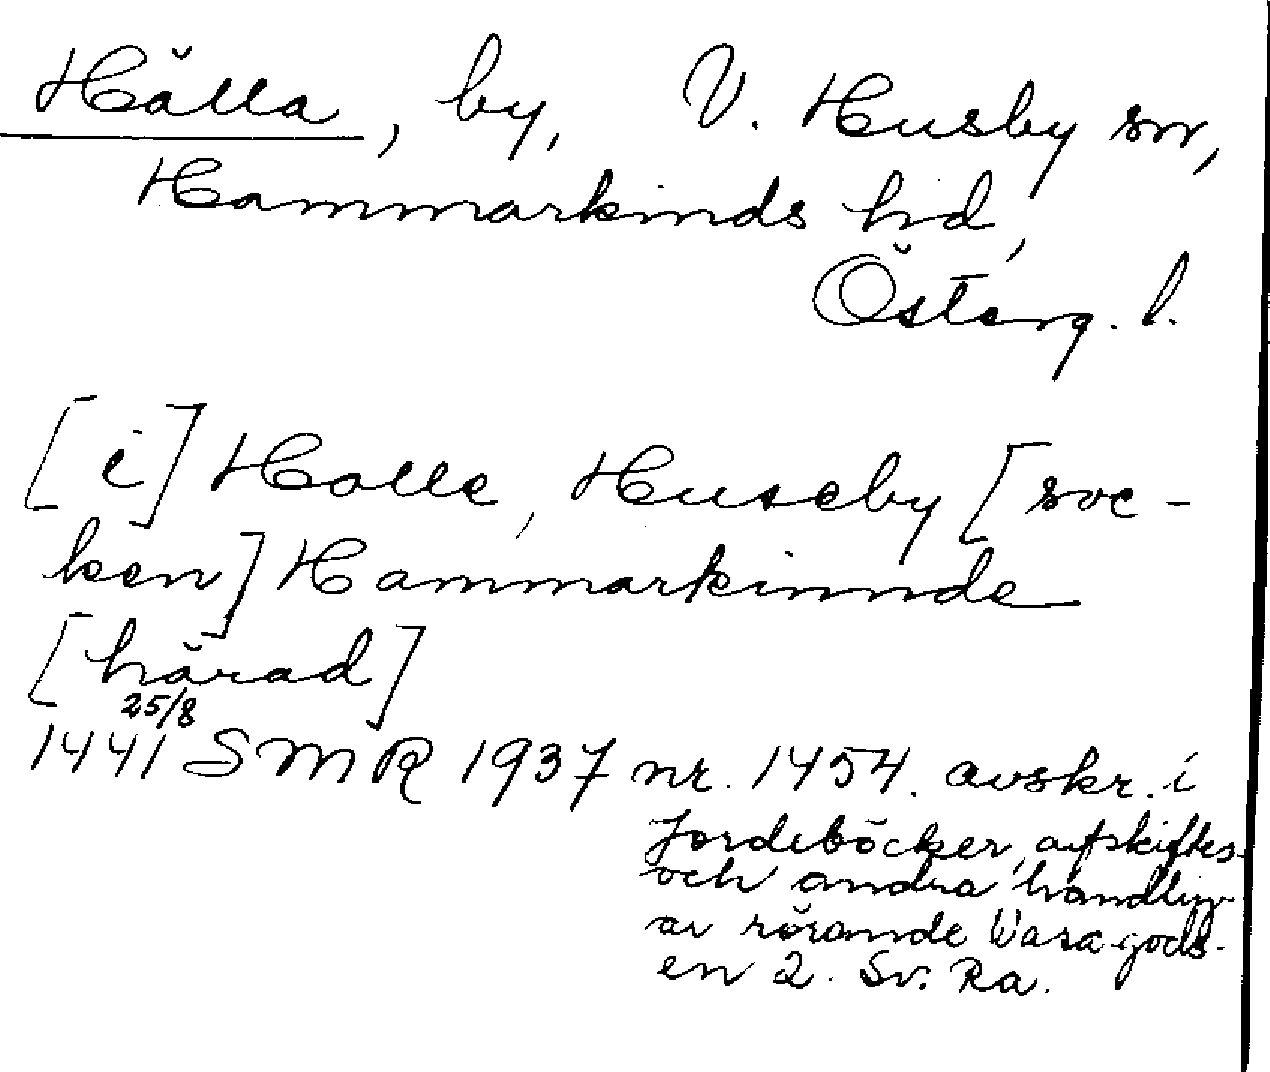 Hälla, by, V. Husby sn,
Hammarkinds hd,
Österg. l.
[i] Holle, Huseby [soc-
ken] Hammarkinnde
[härad]
25/8
1441 SMR 1937 nr. 1454. avskr. i
Jordeböcker, afskiftes-
och andra handlin-
ar rörande Vasagods-
en 2. Sv. Ra.